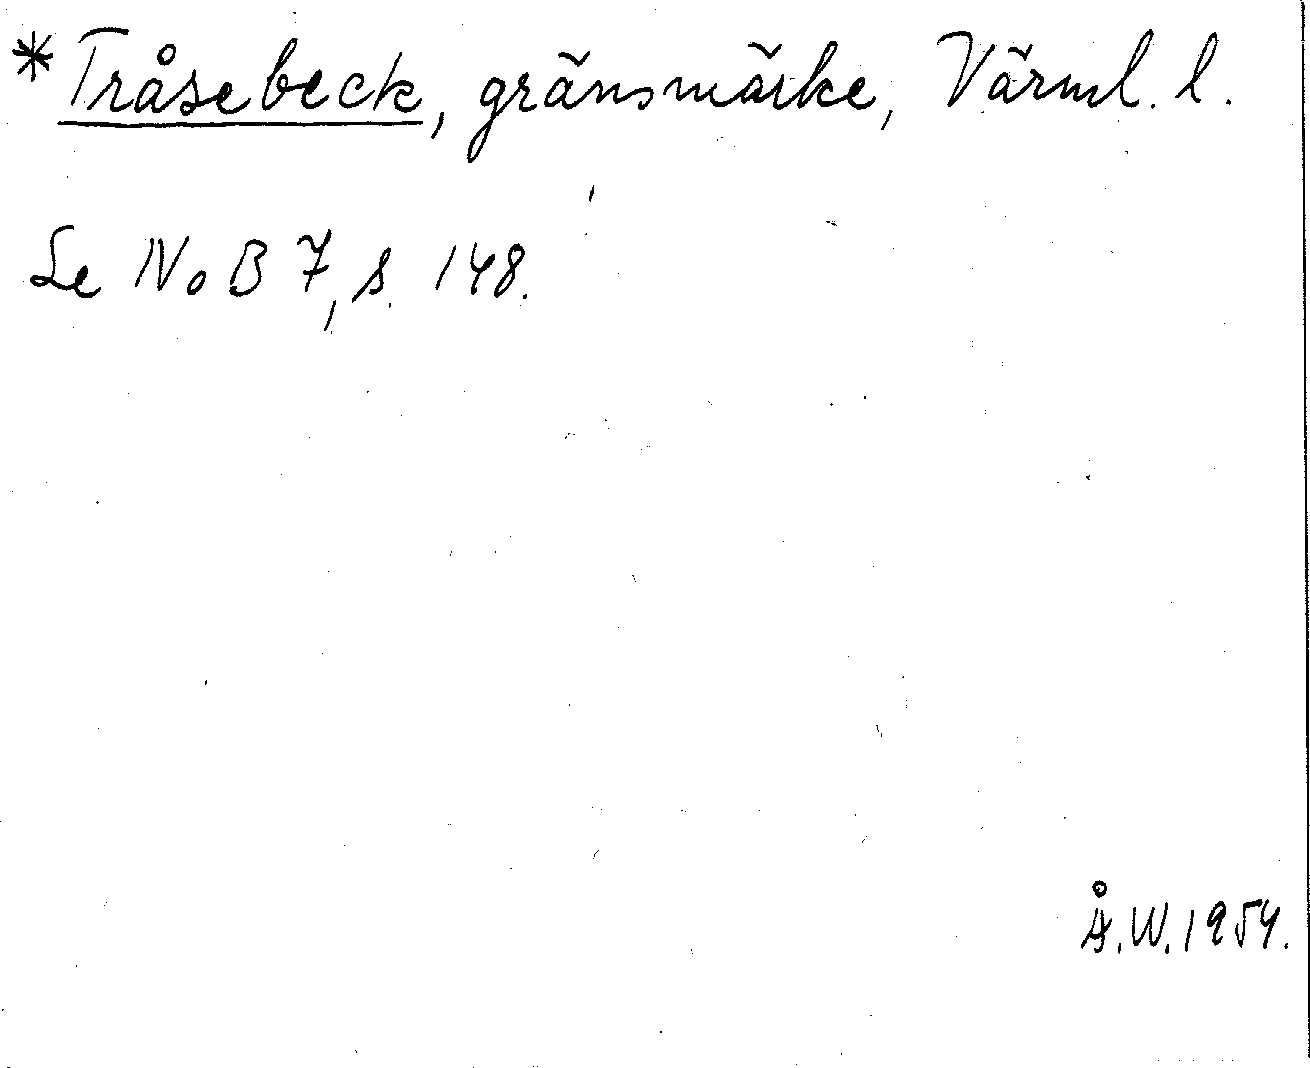 * Tråsebeck, gränsmärke, Värml. l.
Se NoB 7, s. 148.
Å.W. 1954.